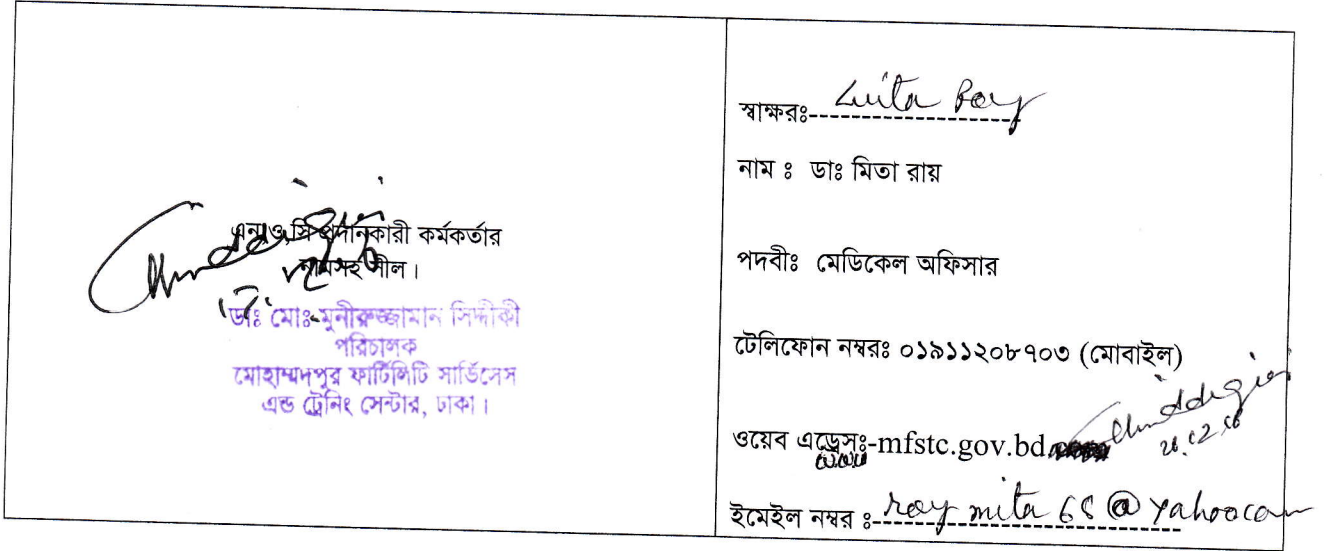 এনওসি প্রদানকারী কর্মকর্তার
নামসহ সীল।
ডাঃ মোঃ মুনীরুজ্জামান সিদ্দীকী
পরিচালক
মোহাম্মদপুর ফার্টিলিটি সার্ভিসেস
এন্ড ট্রেনিং সেন্টার, ঢাকা।
স্বাক্ষরঃ Mita Roy
নাম ঃ ডাঃ মিতা রায়
পদবীঃ মেডিকেল অফিসার
টেলিফোন নম্বরঃ ০১৯১১২০৮৭০৩ (মোবাইল)
ওয়েব এড্রেসঃ-mfstc.gov.bd
www
ইমেইল নম্বর ঃ roy mita 68 @ yahoo com